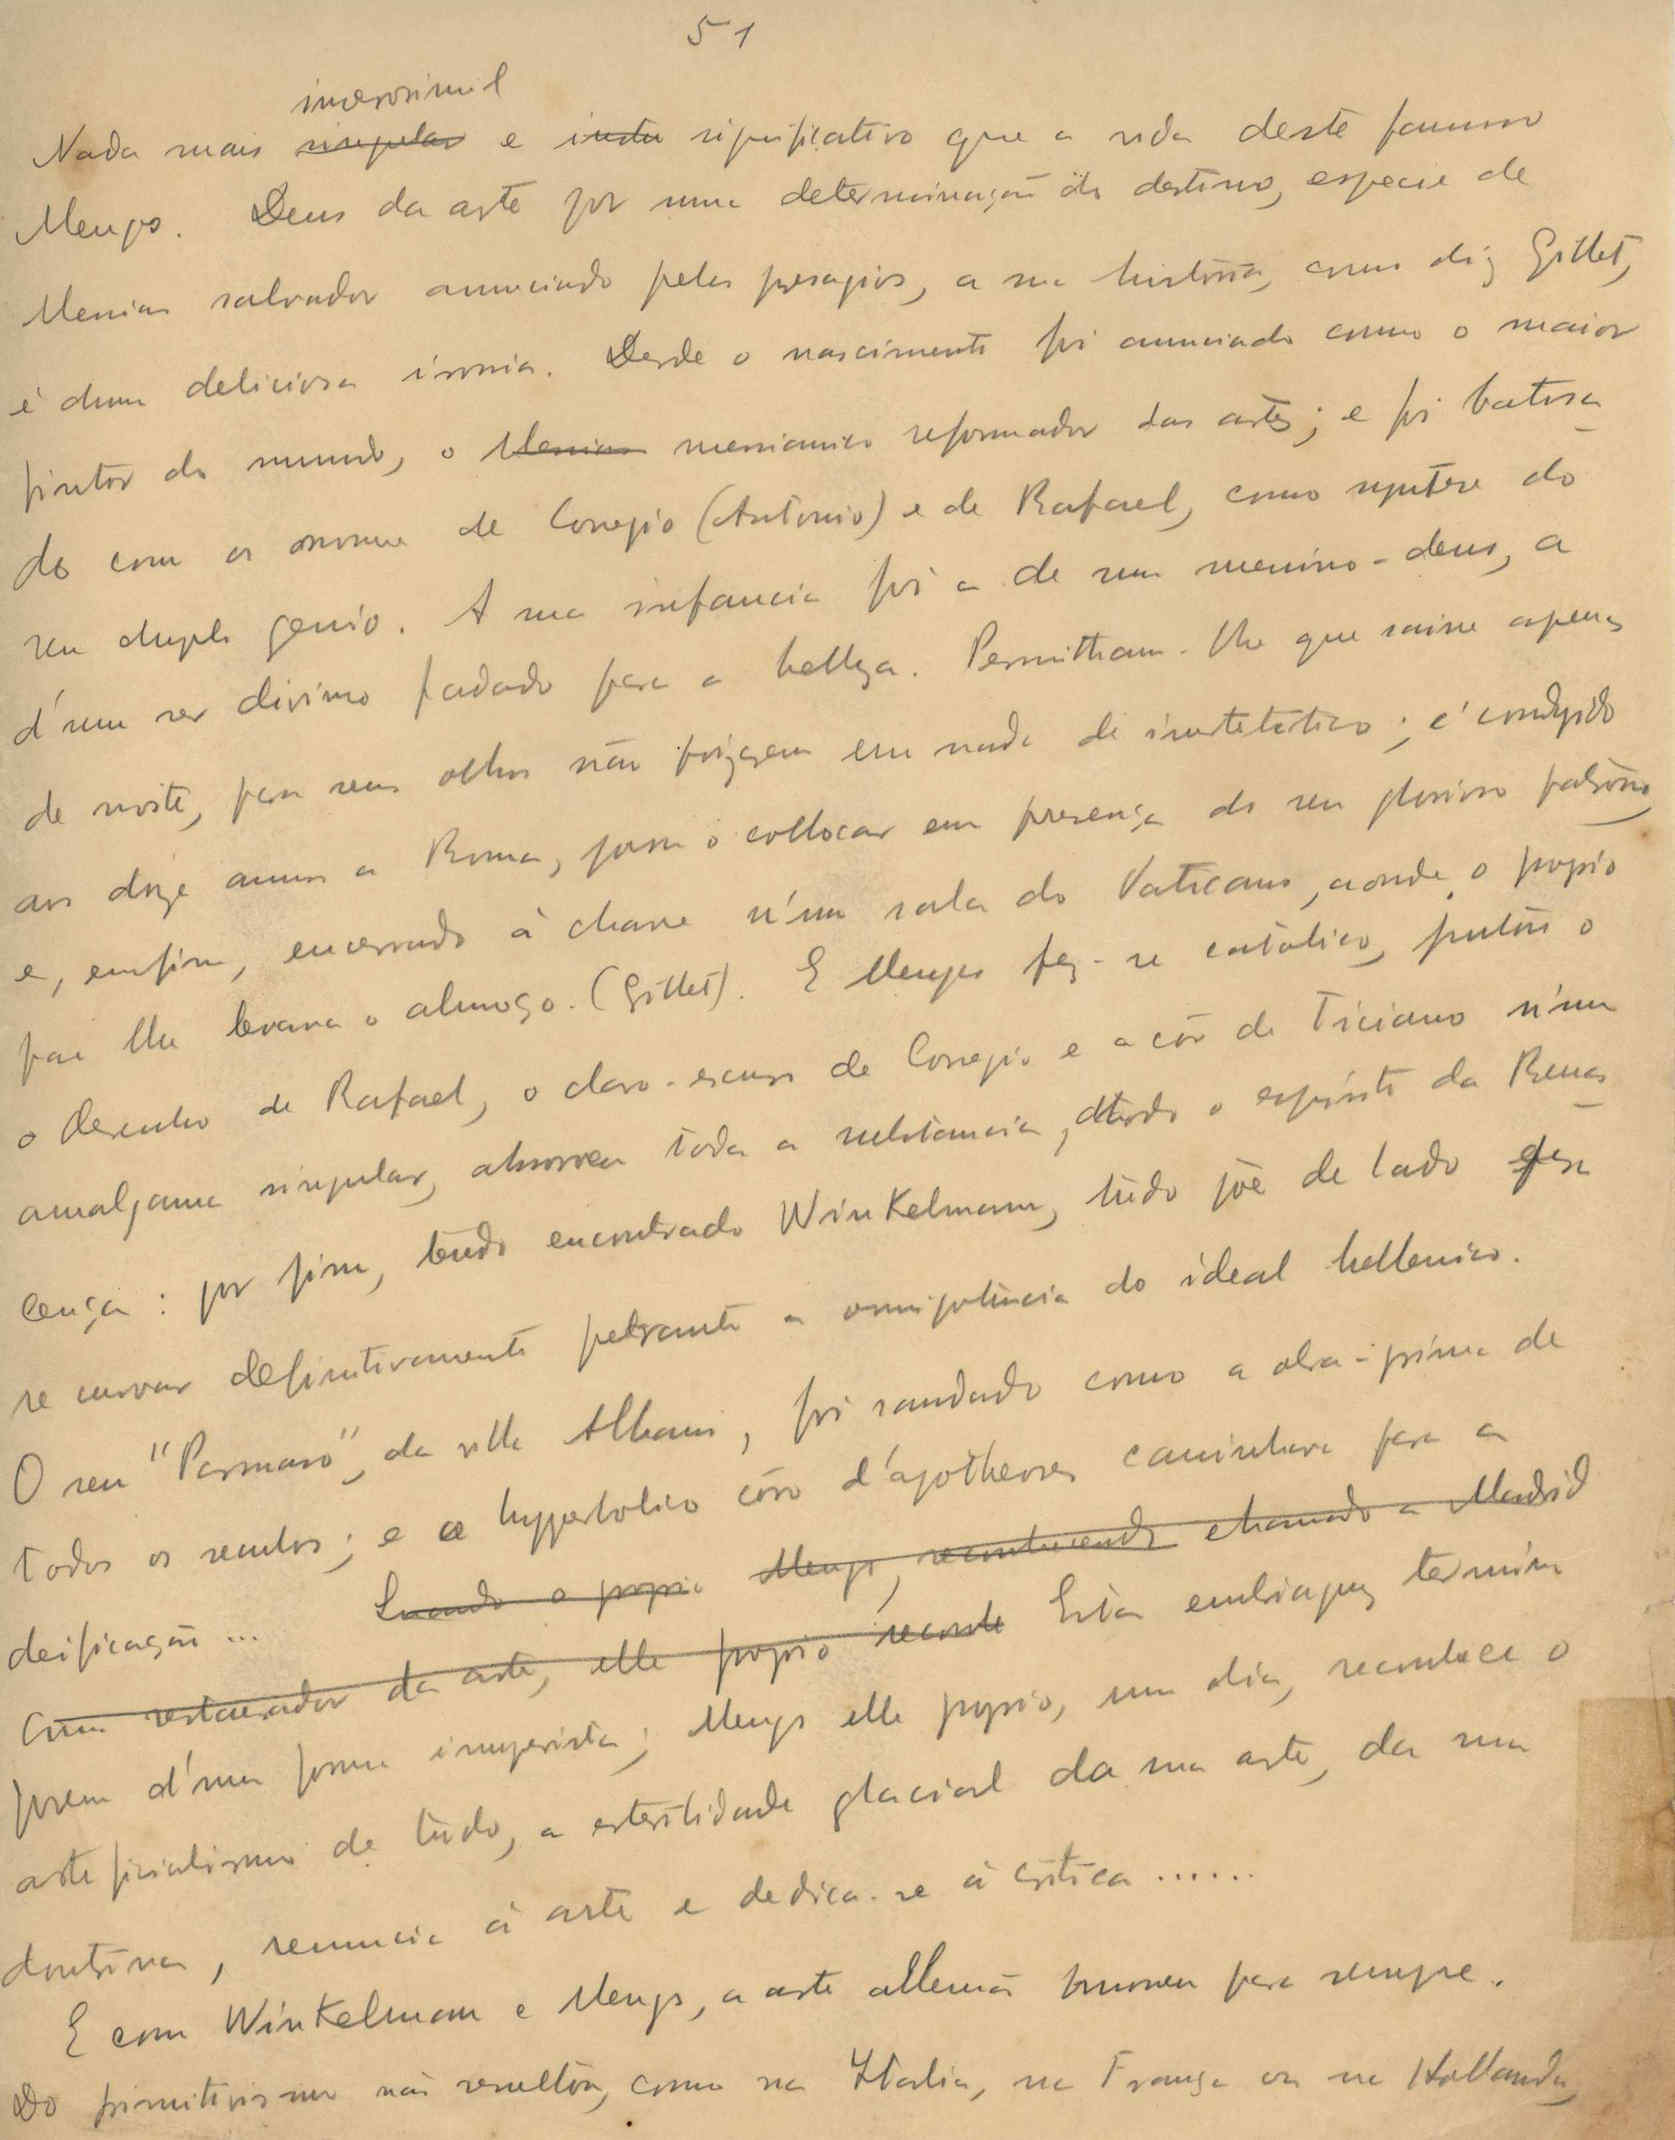 51
inverosimil
Nada mais singular e isto significativo que a vida deste famoso
Mengs. Deus da arte por uma determinação do destino, especie de
Messias salvador annunciado pelos presagios, a sua historia, como diz Gillet,
é duma deliciosa ironia. Desde o nascimento foi annunciado como o maior
pintor do mundo, o Messias messianico reformador das artes; e foi batisa
do com os nomes de Corregio (Antonio) e de Rafael, como synthese do
seu duplo genio. A sua infancia foi a de um menino-deus, a
d'um ser divino fadado para a belleza. Permittiam-lhe que saisse apenas
de noite, para seus olhos não em nada de inesthetico; é conduzido
aos doze annos a Roma, para o collocar em presença do seu glorioso patrono,
e, emfim, encerrado à chave n'uma sala do Vaticano, aonde o proprio
pae lhe levava o almoço. (Gillet). E Mengs fez-se católico, juntou o
o desenho de Rafael, o claro-escuro de Corregio e a côr de Ticiano n'uma
amalgama singular, absorveu toda a substancia, todo o espirito da Renas
cença: por fim, tendo encontrado Winkelmann, tudo põe de lado para
se curvar definitivamente perante a omnipotencia do ideal hellenico.
O seu "Parnaso", da villa Albani, foi saudado como a obra-prima de
todos os seculos; e o hyperbolico côro d'apotheoses caminhava para a
deificação... Quando o proprio Mengs, reconhecendo chamado a Madrid
como restaurador da arte, elle proprio reconhe Esta embriaguez termina
porem d'uma forma imprevista; Mengs elle proprio, um dia, reconhece o
arteficialismo de tudo, a esterilidade glacial da sua arte, da sua
doutrina, renuncia á arte e dedica-se á critica ......
E com Winkelmann e Mengs, a arte allemã morreu para sempre.
Do primitivismo não resultou, como na Italia, na França ou na Hollanda,